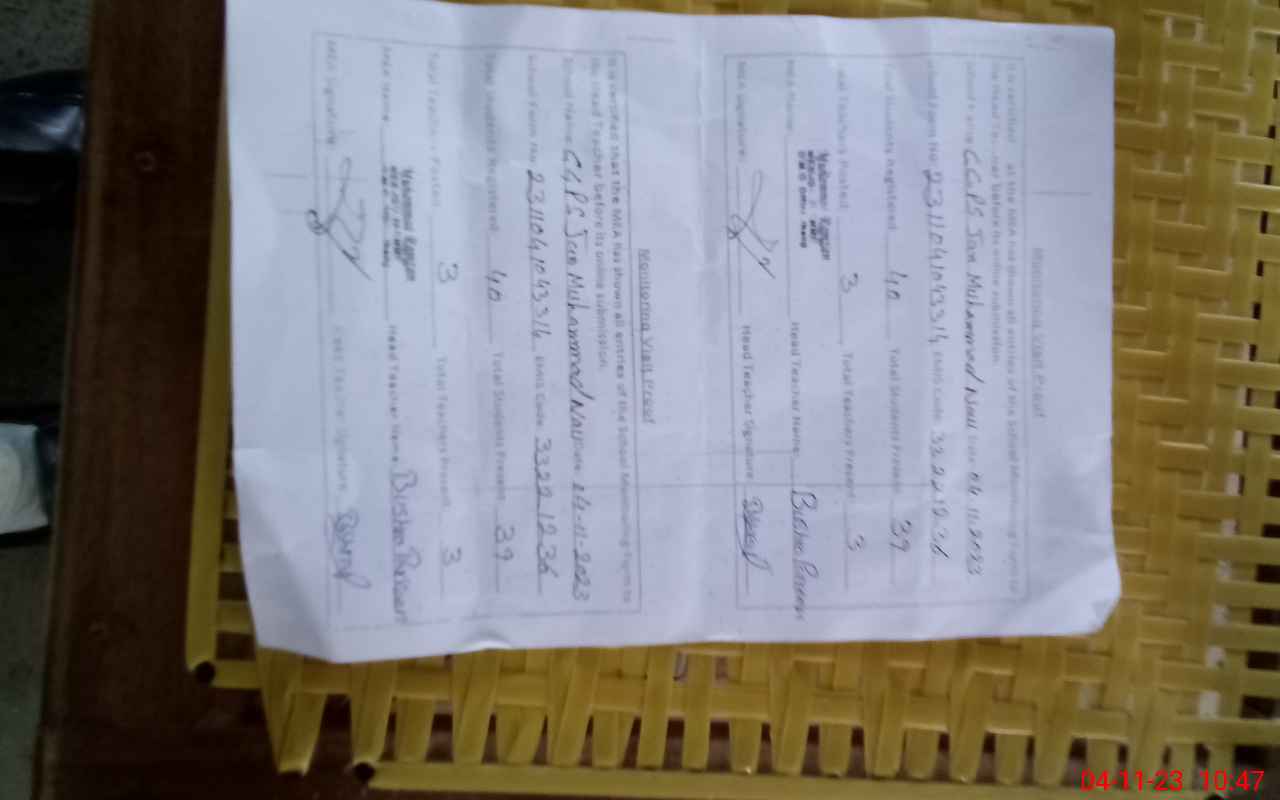 Monitoring Visit Proof
It is certified that the MEA has shown all entries of the School Monitoring Form to
the Head Teacher before its online submission.
School Name GGPS Jan Muhammad Date 04.11.2023
School Form No. 231104104331 EMIS Code
Total Students Registered 40 Total Students Present 39
Total Teachers Posted 3 Total Teachers Present 3
MEA Name Head Teacher Name Bushra
MEA Signature: Head Teacher Signature
Monitoring Visit Proof
It is certified that the MEA has shown all entries of the School Monitoring Form to
the Head Teacher before its online submission.
School Name GGPS Muhammad Date 04-11-2023
School Form No. 231104104331 EMIS Code 33221236
Total Students Registered 40 Total Students Present 39
Total Teachers Posted 3 Total Teachers Present 3
MEA Name Head Teacher Name Bushra
MEA Signature: Head Teacher Signature
04-11-23 10:47